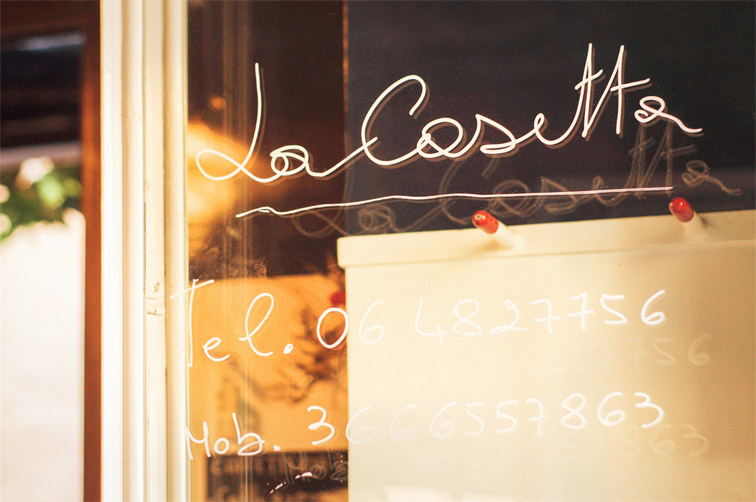 La Casetta
Tel. 06 4827756
Mob. 3666557863